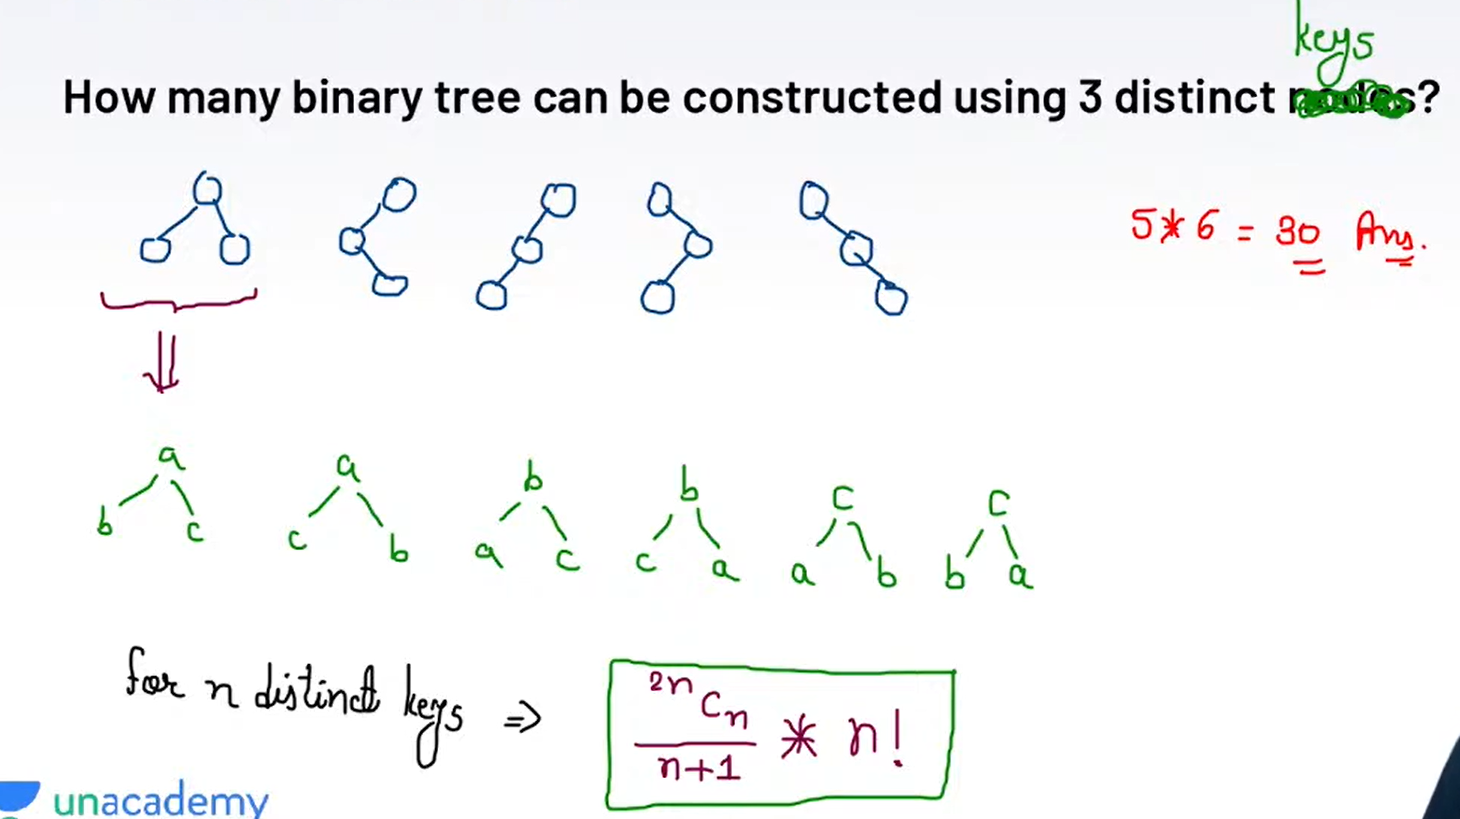 keys
How many binary tree can be constructed using 3 distinct ?
5*6 = 30 Ans.
a a b b c c
b c c b a c c a a b b a
for n distinct keys ⇒ ²ⁿCₙ / n+1 * n!
unacademy